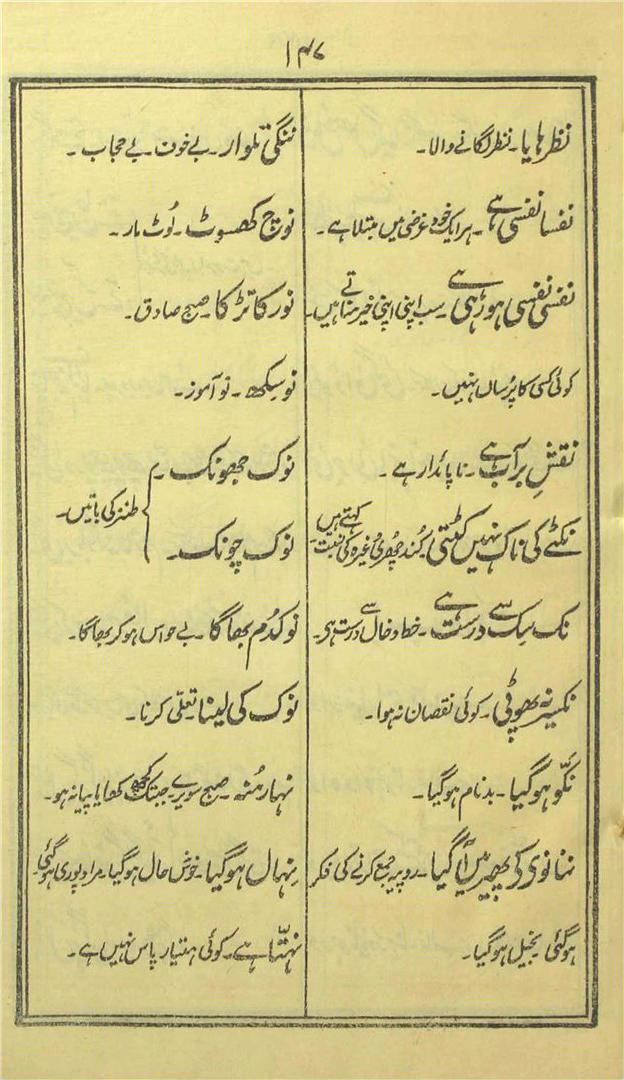 ۱۴۷
نظر ہایا۔ نظر لگانے والا۔
نفسا نفسی ہے۔ ہر ایک خود غرضی میں مبتلا ہے۔
نفسی نفسی ہو رہی ہے۔ سب اپنی اپنی خیر مناتے ہیں۔
کوئی کسی کا پُرساں نہیں۔
نقشِ بر آب ہے۔ ناپائدار ہے۔
نکٹے کی ناک نہیں کٹتی کُند چھری وغیرہ کی نسبت کہتے ہیں۔
نک سک سے درست ہے۔ خط و خال سے درست ہی۔
نکسیر نہ پھوٹی۔ کوئی نقصان نہ ہوا۔
نکّو ہو گیا۔ بدنام ہو گیا۔
ننانوی کے پھیر میں آ گیا۔ روپیہ جمع کرنے کی فکر
ہو گئی بخیل ہو گیا۔
ننگی تلوار۔ بے خوف بے حجاب۔
نوچ کھسوٹ۔ لُوٹ مار۔
نور کا تڑکا۔ صبح صادق۔
نو سیکھ۔ نو آموز۔
نوک جھونک۔
نوک چونک۔
طنز کی باتیں۔
نوکدُم بھاگا۔ بے حواس ہو کر بھاگا۔
نوک کی لینا تعلّی کرنا۔
نہار مُنھ۔ صبح سویرے۔ جبتک کچھ کھایا پیا نہ ہو۔
نِہال ہو گیا۔ خوش حال ہو گیا۔ مراد پوری ہو گئی۔
نہتّا ہے۔ کوئی ہتیار پاس نہیں ہے۔